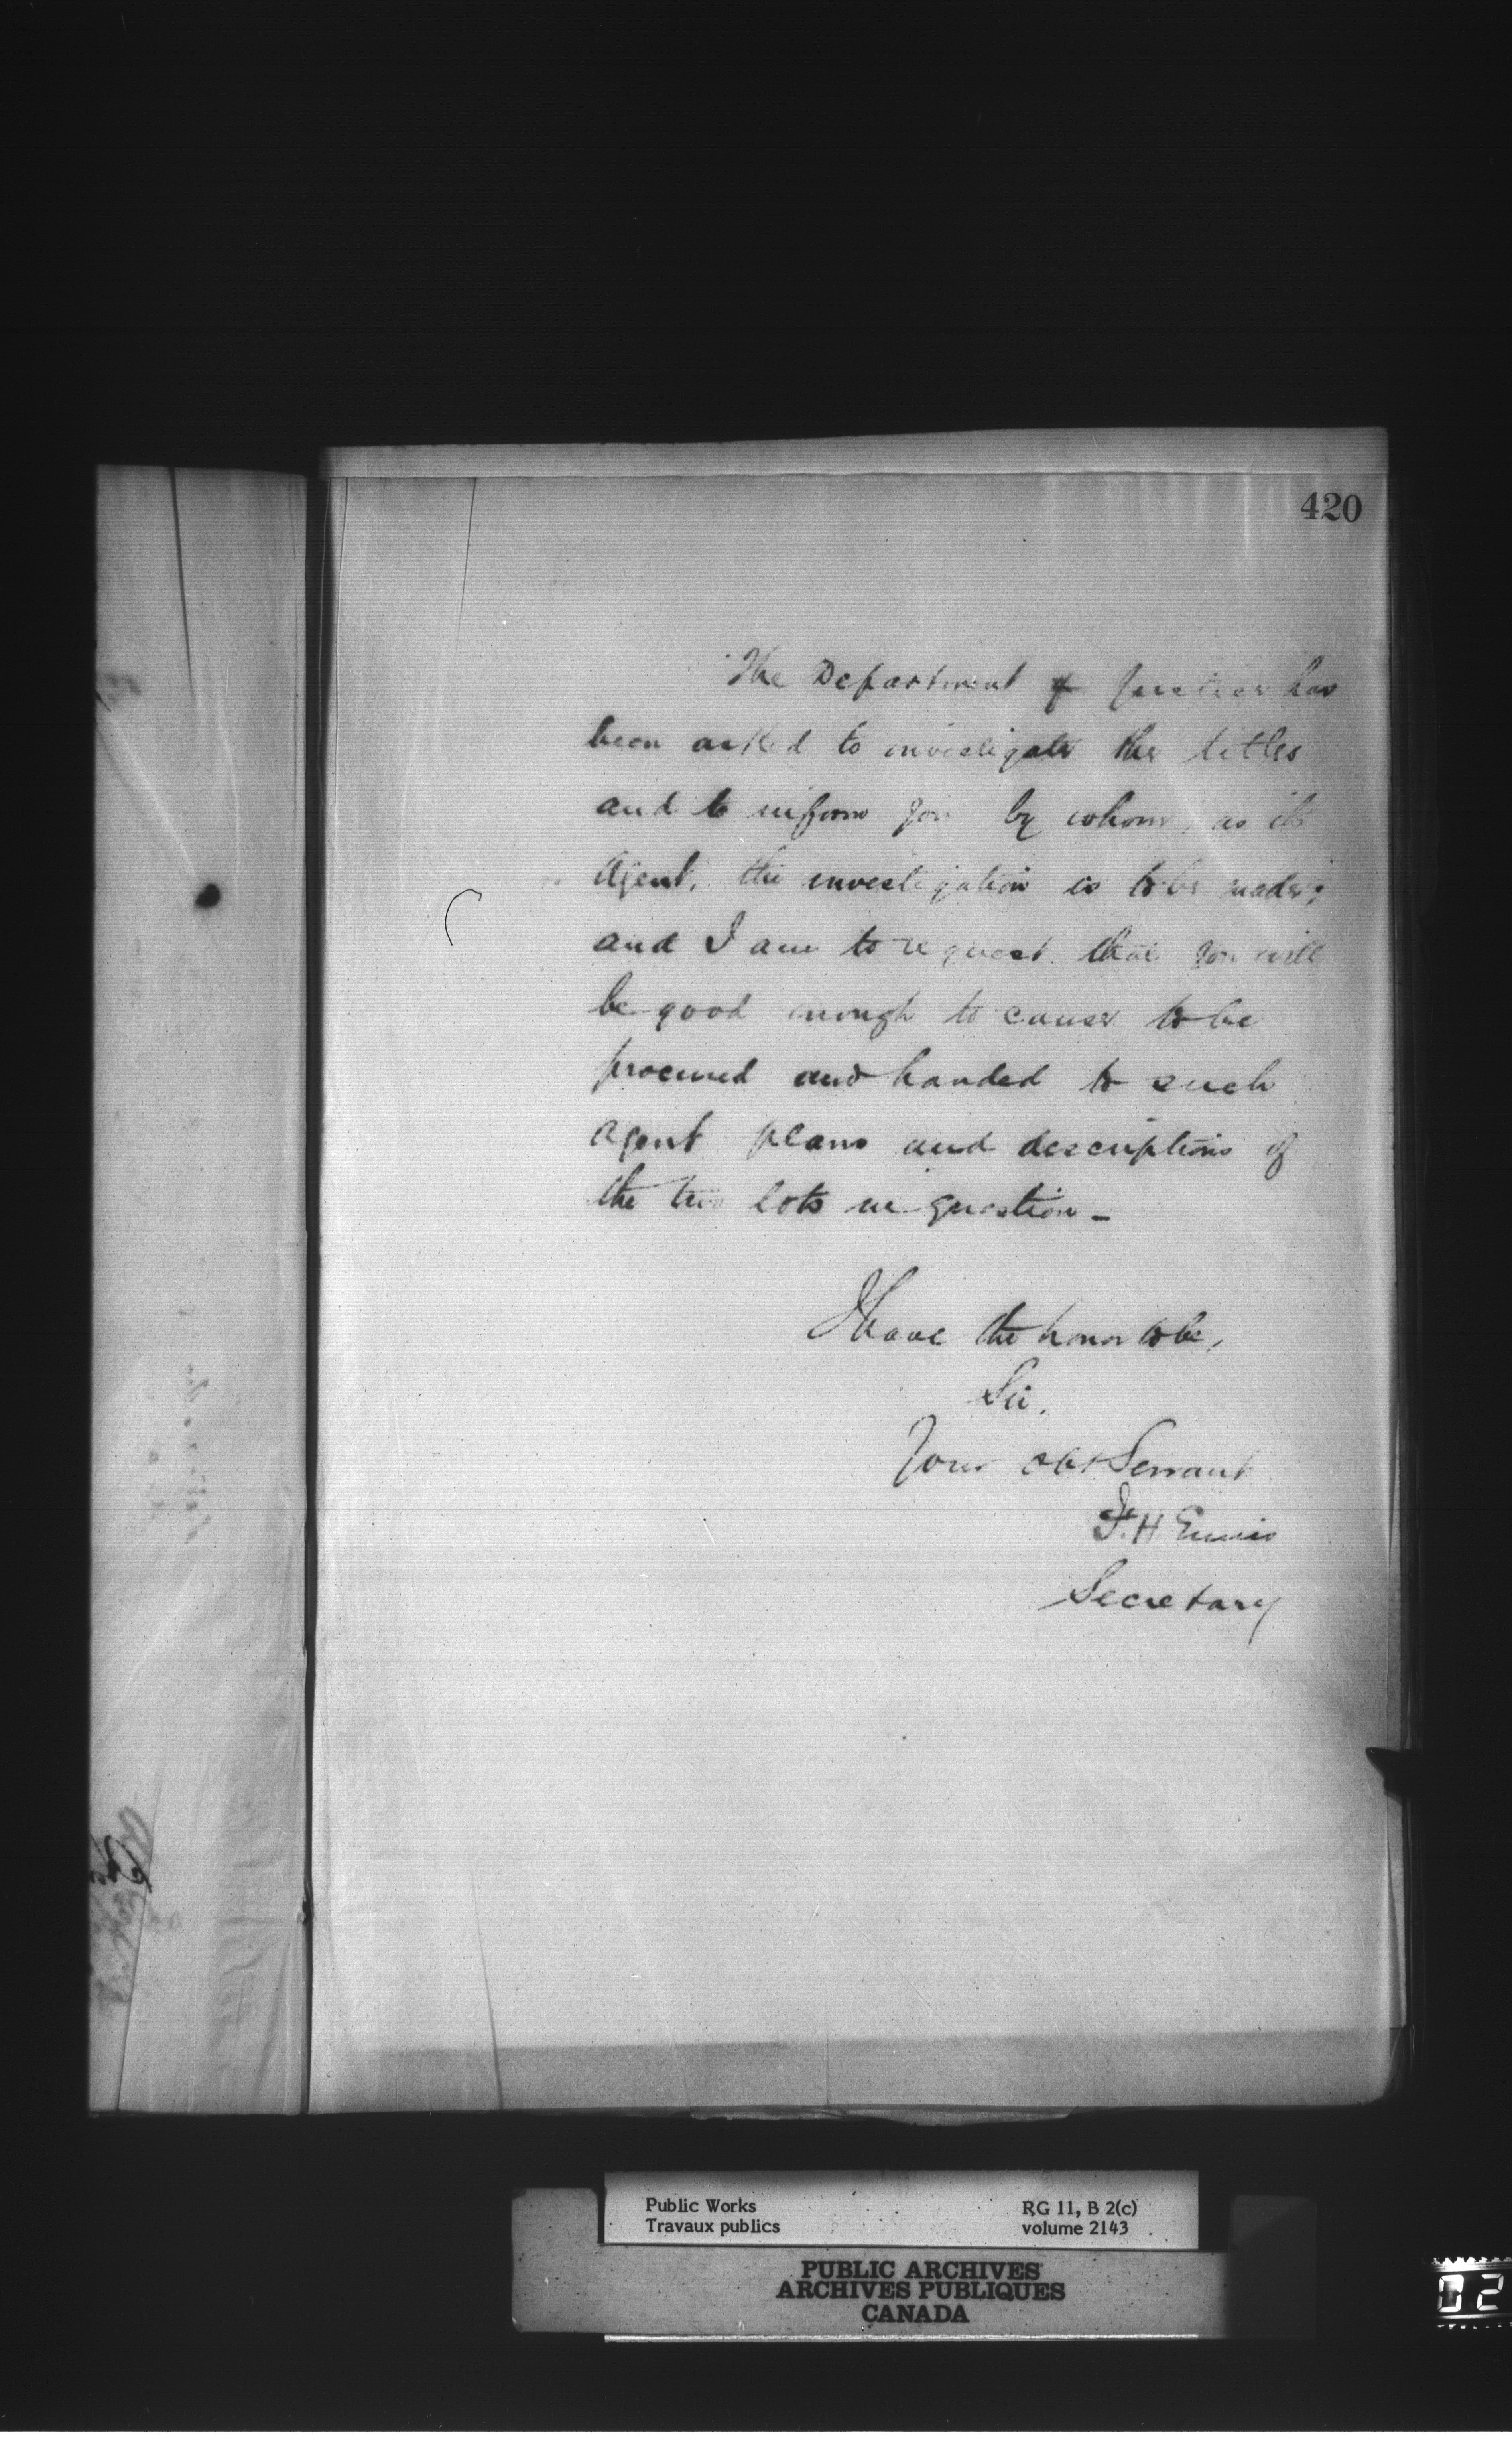 420
The Department of Justice has
been asked to investigate the titles
and to inform you by whom, as its
Agent, the investigation is to be made;
and I am to request that you will
be good enough to cause to be
procured and handed to such
agent plans and descriptions of
the two lots in question -
I have the honor to be,
Sir,
Your obt Servant
F. H. Ennis
Secretary
Public Works
Travaux publics
RG 11, B 2(c)
volume 2143
PUBLIC ARCHIVES
ARCHIVES PUBLIQUES
CANADA
02